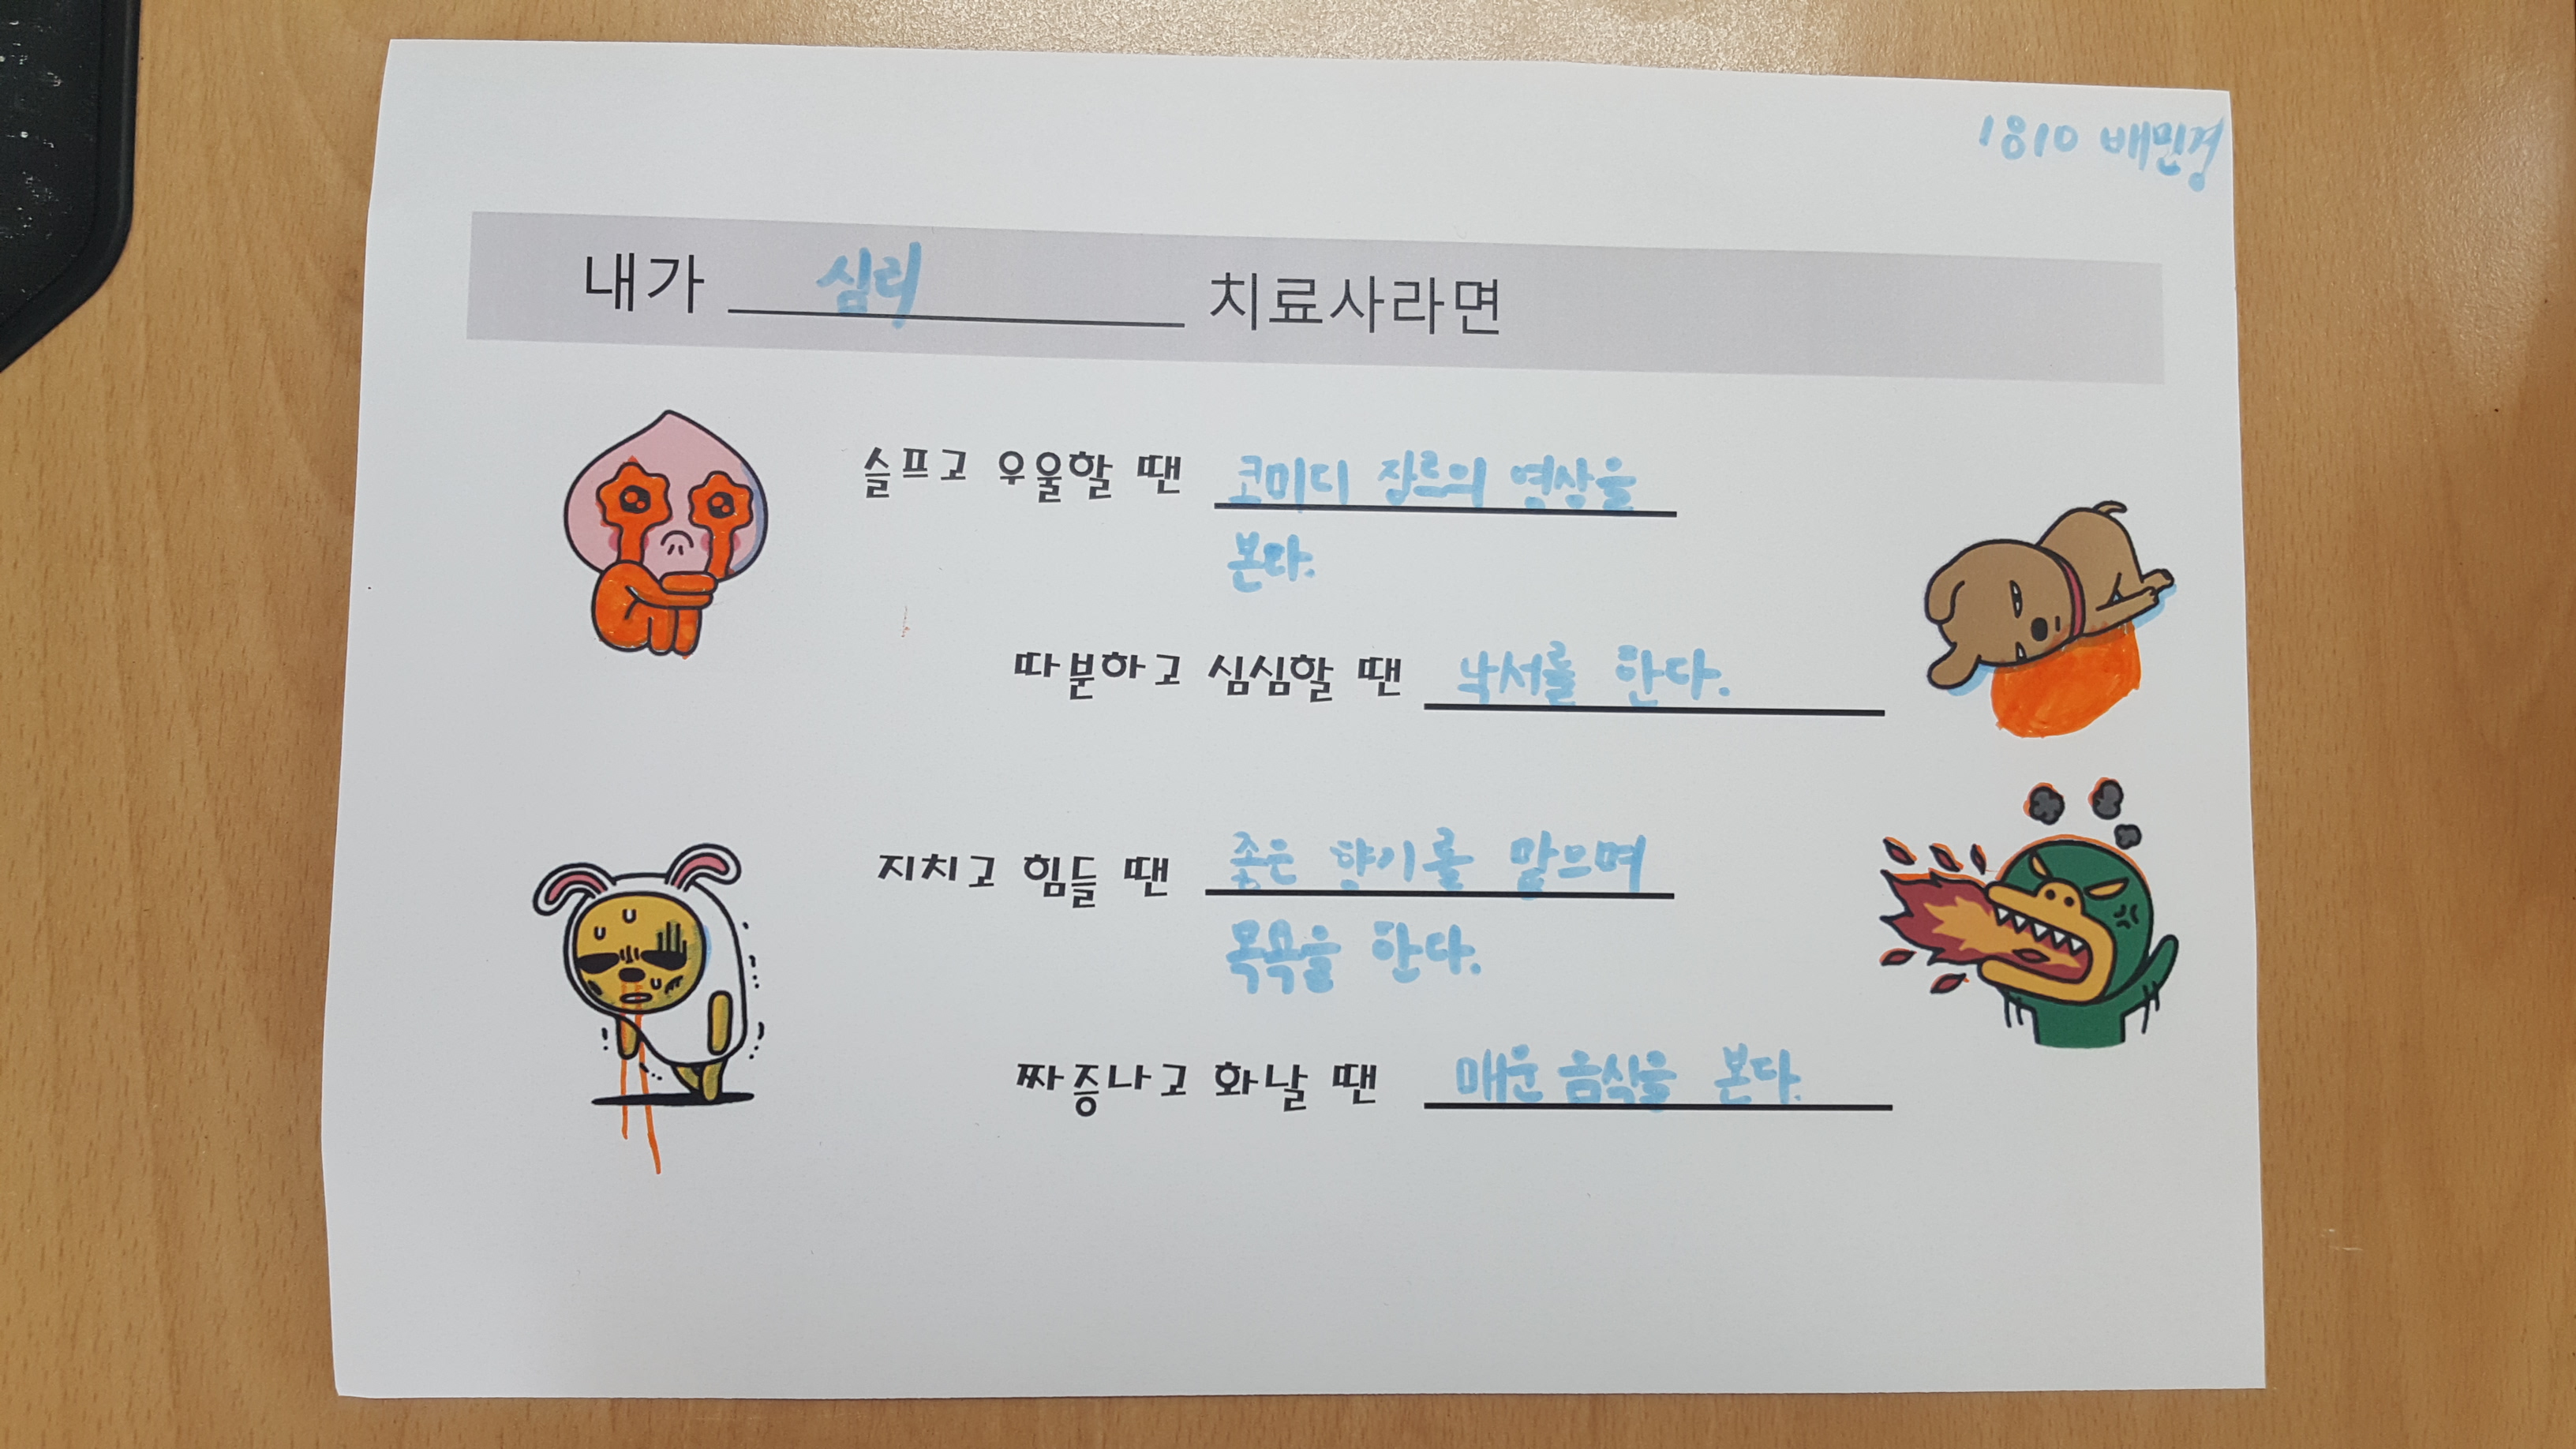 1810 배민경
내가 심리 치료사라면
슬프고 우울할 땐 코미디 장르의 영상을
본다.
따분하고 심심할 땐 낙서를 한다.
지치고 힘들 땐 좋은 향기를 맡으며
목욕을 한다.
짜증나고 화날 땐 매운 음식을 본다.